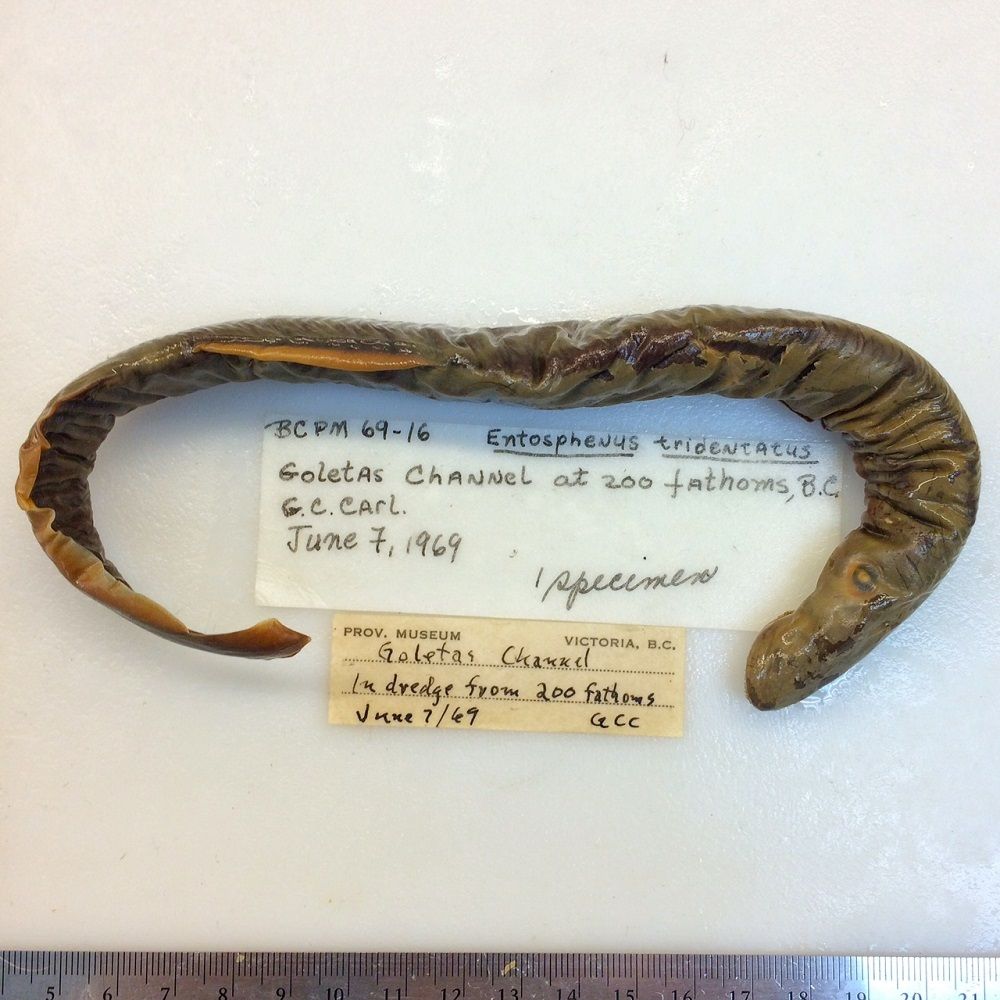 BCPM 69-16 Entosphenus tridentatus
Goletas Channel at 200 fathoms, B.C.
G.C. Carl.
June 7, 1969
1 specimen
PROV. MUSEUM VICTORIA, B.C.
Goletas Channel
In dredge from 200 fathoms
June 7/69 GCC
5 6 7 8 9 10 11 12 13 14 15 16 17 18 19 20 21